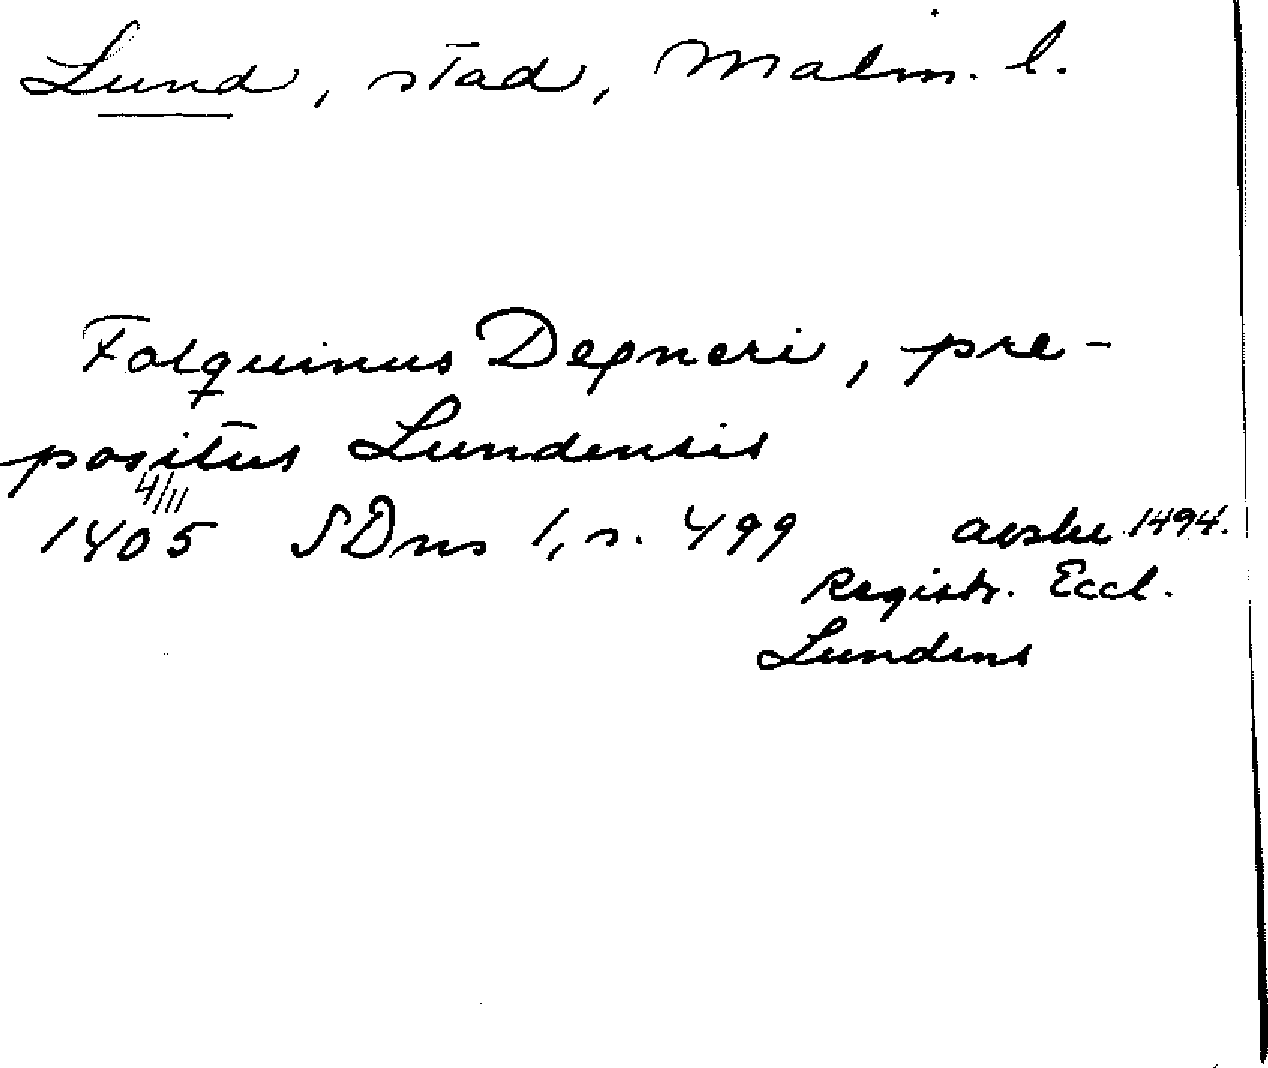 Lund, stad, Malm. l.
Folquinus Degneri, pre-
positus Lundensis
4/11
1405 SDns 1, s. 499 avskr 1494.
Registr. Eccl.
Lundens